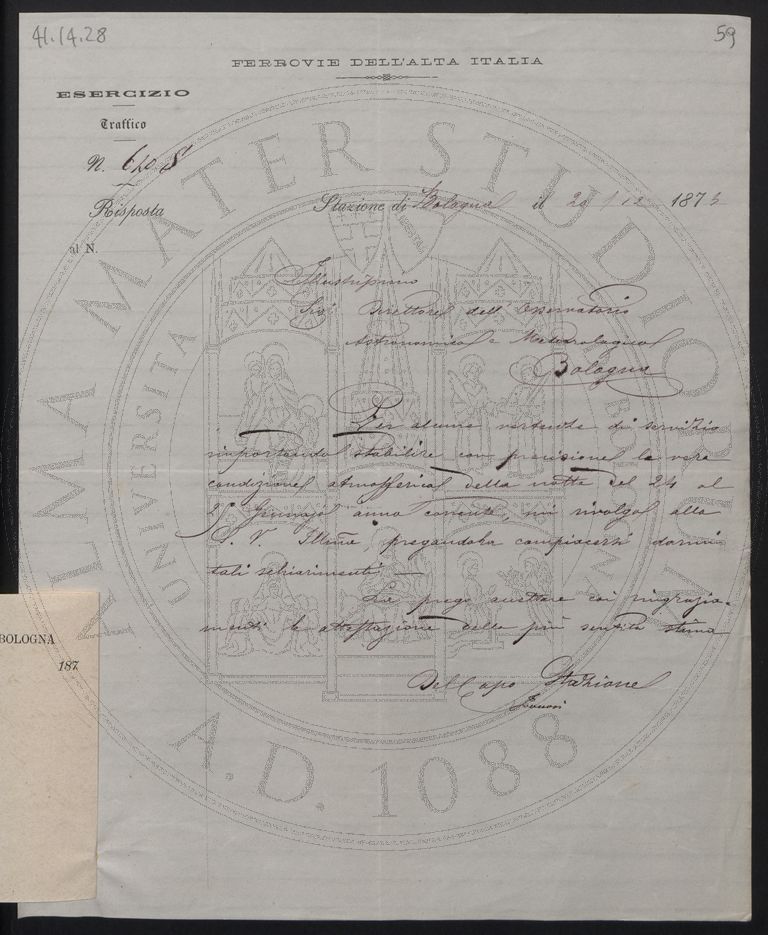 41.14.28
59
FERROVIE DELL'ALTA ITALIA
ESERCIZIO
Traffico
N. 640 S
Risposta
al N.
Stazione di Bologna il 20/12 1873
Illustrissimo
Sig. Direttore dell'Osservatorio
Astronomico e Meteorologico
Bologna
Per alcune vertenze di servizio
importando stabilire con precisione la vera
condizione atmosferica della notte del 24 al
25 Gennajo anno corrente, mi rivolgo alla
S. V. Illma, pregandola compiacersi darmi
tali schiarimenti. —
La prego accettare coi ringrazia-
menti le attestazione della più sentita stima
Del Capo Stazione
BOLOGNA
187
ALMA MATER STUDIORUM
UNIVERSITA DI BOLOGNA
A.D. 1088